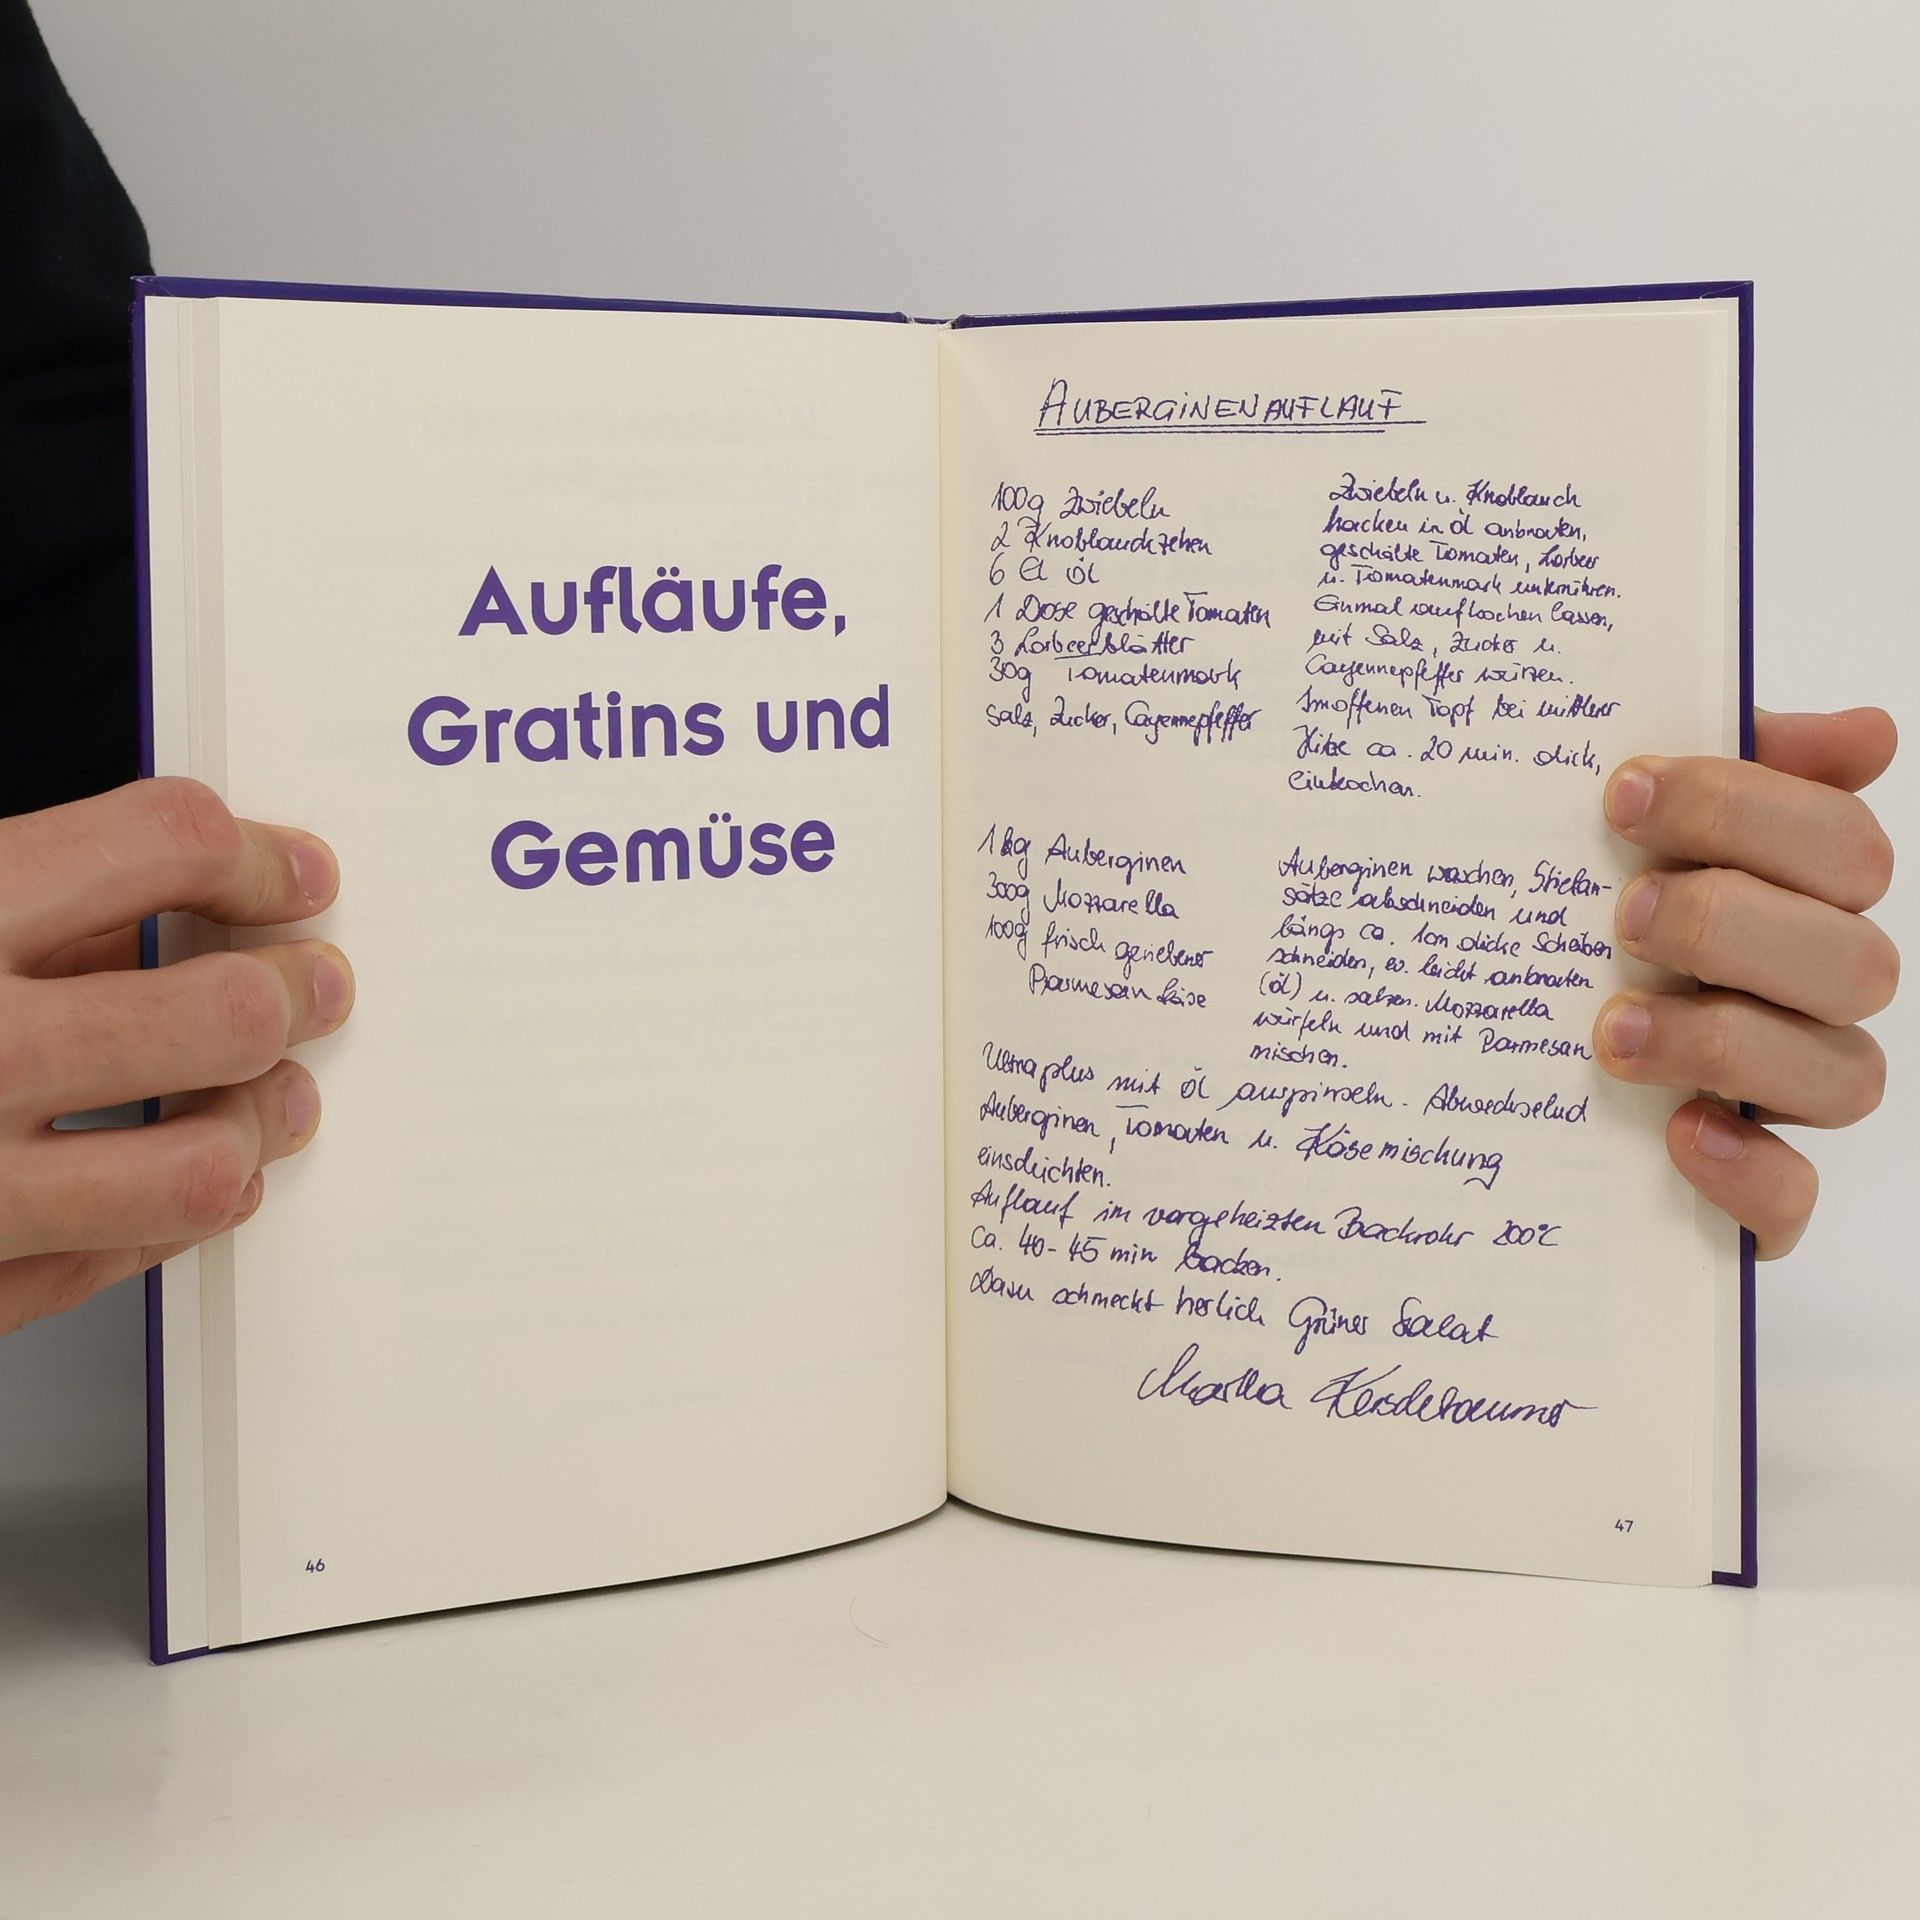 Aufläufe,
Gratins und
Gemüse
46
AUBERGINENAUFLAUF
100g Zwiebeln
2 Knoblauchzehen
6 El Öl
1 Dose geschälte Tomaten
3 Lorbeerblätter
30g Tomatenmark
Salz, Zucker, Cayennepfeffer
Zwiebeln u. Knoblauch
hacken in Öl anbraten,
geschälte Tomaten, Lorbeer
u. Tomatenmark unterrühren.
Einmal aufkochen lassen,
mit Salz, Zucker u.
Cayennepfeffer würzen.
Im offenen Topf bei mittlerer
Hitze ca. 20 min. dick,
einkochen.
1 kg Auberginen
300g Mozzarella
100g frisch geriebener
Parmesan Käse
Auberginen waschen, Stielan-
sätze abschneiden und
längs ca. 1cm dicke Scheiben
schneiden, ev. leicht anbraten
(Öl) u. salzen. Mozzarella
würfeln und mit Parmesan
mischen.
Ultraplus mit Öl auspinseln. Abwechselnd
Auberginen, Tomaten u. Käsemischung
einschichten.
Auflauf im vorgeheizten Backrohr 200°C
Ca. 40-45 min backen.
Dazu schmeckt herlich Grüner Salat
Martha
47